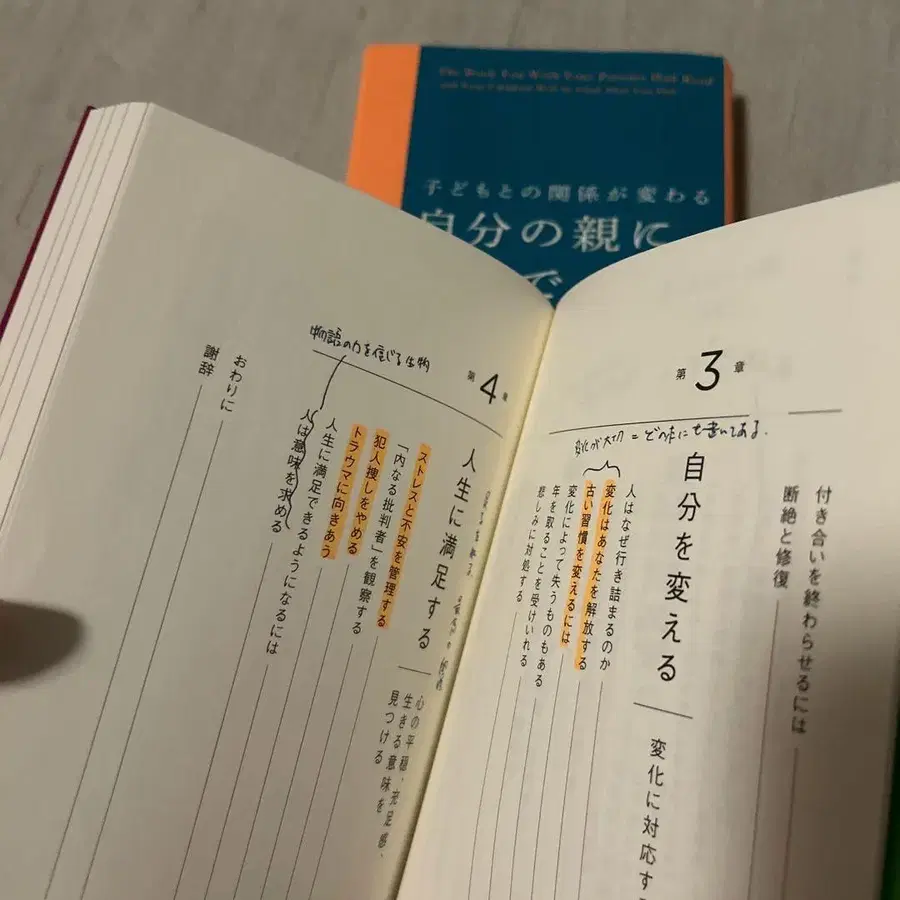 The Book You Wish Your Parents Had Read
子どもとの関係が変わる
自分の親に
で
付き合いを終わらせるには
断絶と修復
第3章
変化が大切=どの本にも書いてある.
自分を変える
変化に対応す
人はなぜ行き詰まるのか
変化はあなたを解放する
古い習慣を変えるには
変化によって失うものもある
年を取ることを受けいれる
悲しみに対処する
第4章
物語の力を信じる生物
人生に満足する
心の平穏、充足感、
生きる意味を
見つける
ストレスと不安を管理する
「内なる批判者」を観察する
犯人捜しをやめる
トラウマに向きあう
人生に満足できるようになるには
人は意味を求める
おわりに
謝辞